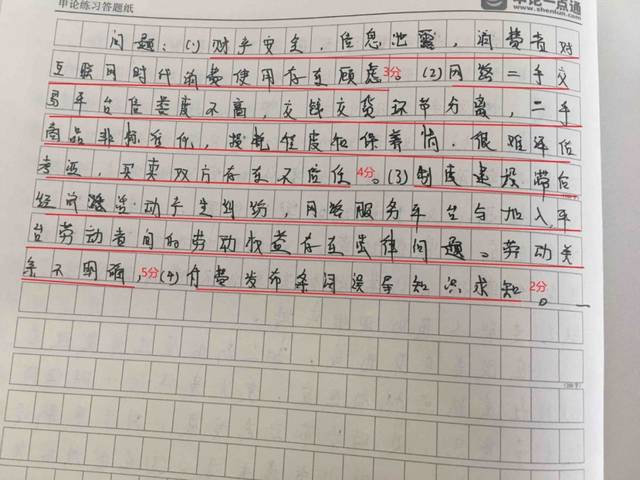 申论练习答题纸
申论一点通
www.shenlun.com
问题:(1)对于安全,信息泄露,消费者对
互联网时代消费使用存在顾虑。3分(2)网络二手交
易平台信誉度不高,交钱交货环节分离,二手
商品非标准化,损耗程度和保养情况很难评估
考查,买卖双方存在不信任。4分(3)制度建设滞后
动产生纠纷,网络服务平台与加入平
台劳动者间的劳动权益存在法律问题。劳动关
系不明确,5分(4)付费发布条词误导知识求知。2分